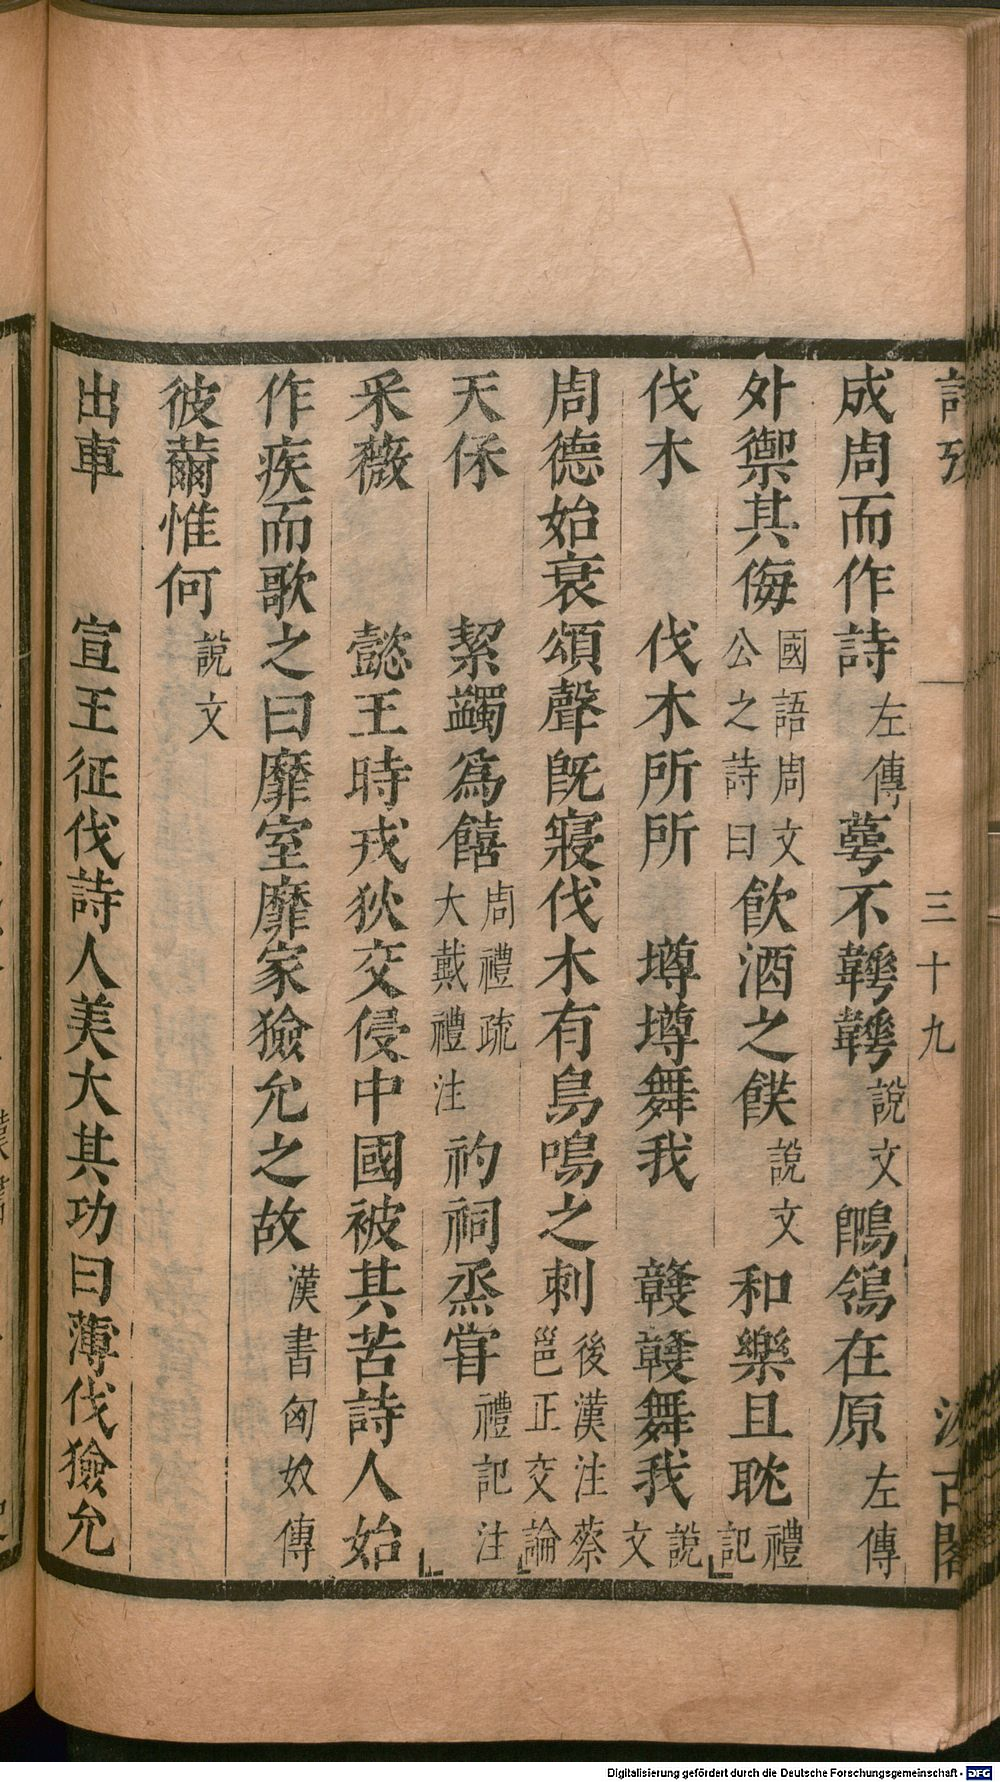 成周而作詩左傳 蕚不韡韡說文 鴡鴒在原左傳
外禦其侮國語周文公之詩曰 飲酒之饫說文 和樂且耽禮記
伐木 伐木所所 墫墫舞我 竷竷舞我說文
周德始衰頌聲旣寢伐木有鳥鳴之刺後漢注蔡邕正交論
天保 絜蠲爲饎周禮疏大戴禮注 礿祠烝甞禮記注
采薇 懿王時戎狄交侵中國被其苦詩人始
作疾而歌之曰靡室靡家獫允之故漢書匈奴傳
彼薾惟何說文
出車 宣王征伐詩人美大其功曰薄伐獫允
三十九
汲古閣
Digitalisierung gefördert durch die Deutsche Forschungsgemeinschaft - DFG